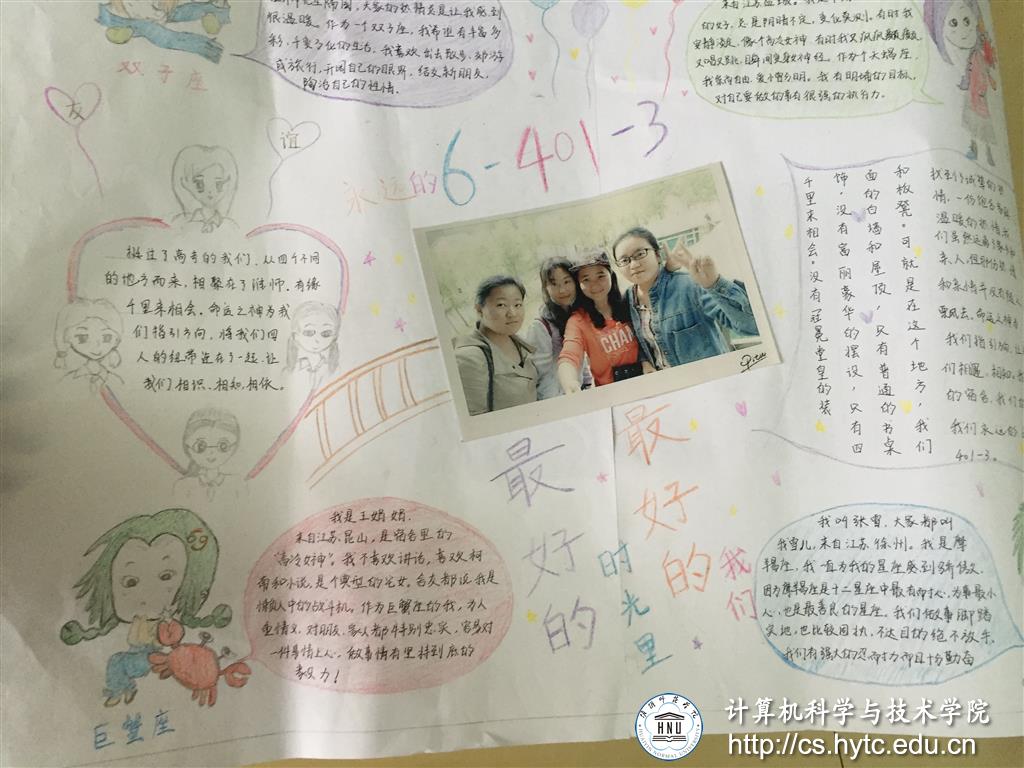 很温暖。作为一个双子座，我希望有丰富多
彩，千变万化的生活。我喜欢出去散步，郊游
或旅行，开阔自己的眼界，结交新朋友，
陶冶自己的性情。
双子座
友
谊
永远的6-401-3
的女孩，总是阴晴不定，变化莫测。有时我
安静淡定，像个高冷女神，有时我又疯疯癫癫，
又唱又跳，且瞬间变身女神经。作为个天蝎座，
我崇尚自由，爱憎分明。我有明确的目标，
对自己要做的事有很强的执行力。
挺过了高考的我们，从四个不同
的地方而来，相聚在了淮师。有缘
千里来相会。命运之神为我
们指引方向，将我们四
人的纽带连在了一起，让
我们相识、相知、相依。
千里来相会。没有冠冕堂皇的装
饰，没有富丽豪华的摆设，只有四
面的白墙和屋顶，只有普通的书桌
和板凳。可就是在这个地方，我们
亲人，但那份
我们永远的
401-3。
最好的
时光里
最好的
我们
我是王娟娟，
来自江苏昆山，是宿舍里的
"高冷女神"。我不喜欢讲话，喜欢柯
南和小说，是个典型的宅女。舍友都说我是
懒人中的战斗机。作为巨蟹座的我，为人
重情义，对朋友，家人都特别忠实，容易对
一件事情上心，做事情有坚持到底的
毅力！
巨蟹座
我叫张雪，大家都叫
我雪儿，来自江苏徐州。我是摩
羯座，我一直为我的星座感到骄傲，
因为摩羯座是十二星座中最有耐心，为事最小
心，也是最善良的星座。我们做事脚踏
实地，也比较固执，不达目的绝不放手，
我们有强大的忍耐力而且十分勤奋
HNU
HUAIYIN NORMAL UNIVERSITY
计算机科学与技术学院
http://cs.hytc.edu.cn